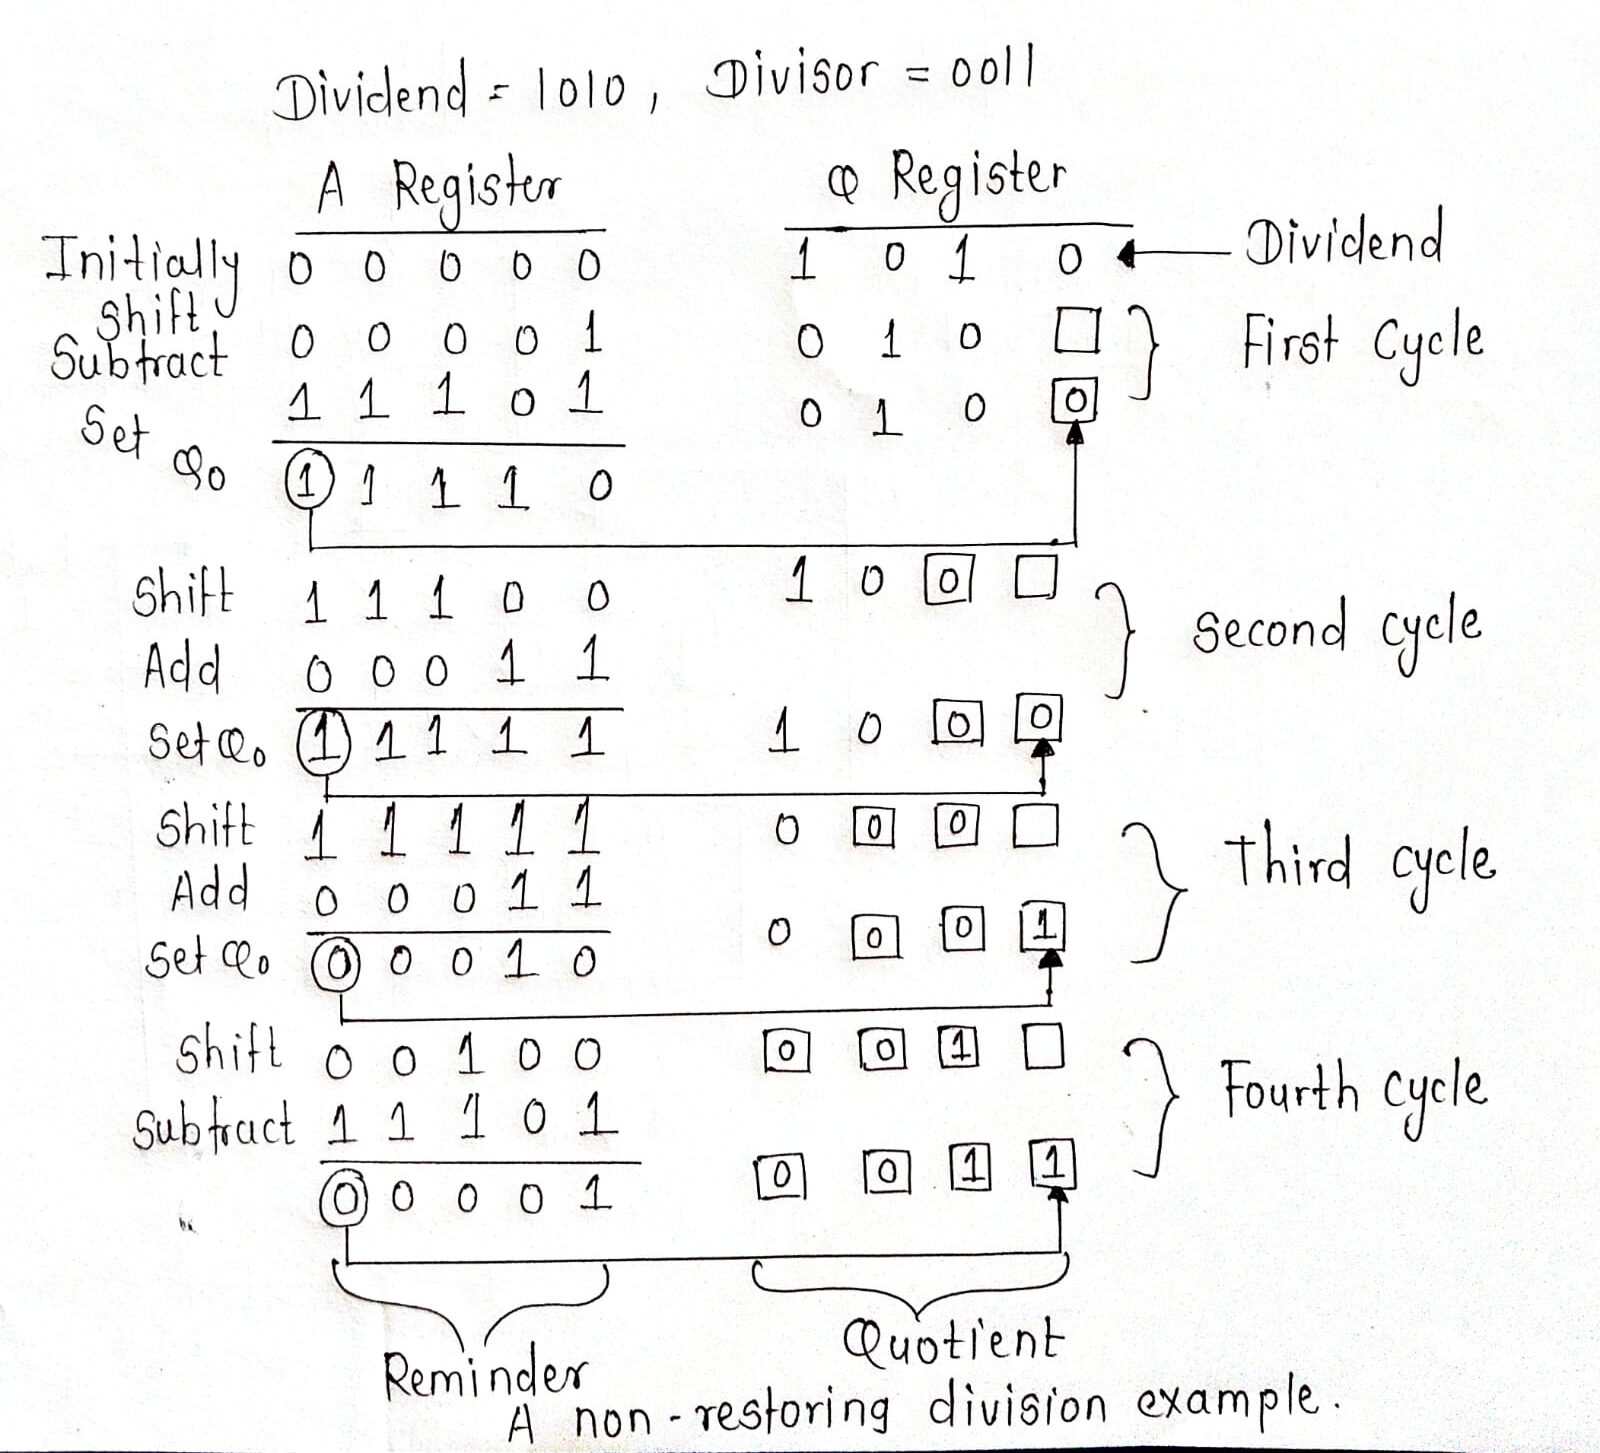 Dividend = 1010, Divisor = 0011
A Register Q Register
Initially 0 0 0 0 0 1 0 1 0 Dividend
Shift 0 0 0 0 1 0 1 0 First Cycle
Subtract 1 1 1 0 1 0 1 0 0
Set Q0 1 1 1 1 0
Shift 1 1 1 0 0 1 0 0 Second cycle
Add 0 0 0 1 1
Set Q0 1 1 1 1 1 1 0 0 0
Shift 1 1 1 1 1 0 0 0 Third cycle
Add 0 0 0 1 1
Set Q0 0 0 0 1 0 0 0 0 1
Shift 0 0 1 0 0 0 0 1 Fourth cycle
Subtract 1 1 1 0 1
0 0 0 0 1 0 0 1 1
Reminder Quotient
A non-restoring division example.